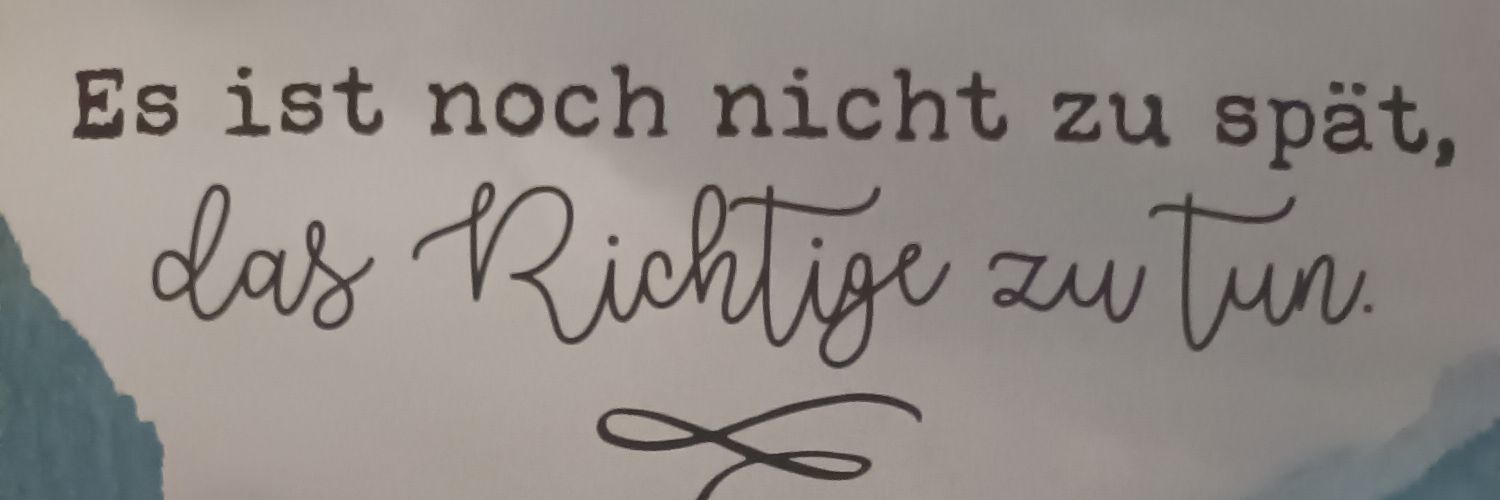 Es ist noch nicht zu spät,
das Richtige zu tun.